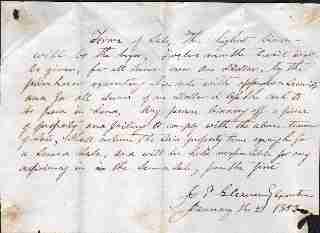 Terms of Sale, The highest bidder
will be the buyer, twelve months credit will
be given, for all sums over one Dollar, by the
purchaser executing his note with approved Security
and for all sums of one dollar & under cash to
be paid in hand. Any person bidding off a piece
of property and failing to comply with the above terms
of sale, I shall return the said property time enough for
a Second Sale, and will be held responsible for any
deficiency in the Second Sale, from the first
J. P. Executor
January 16 1852